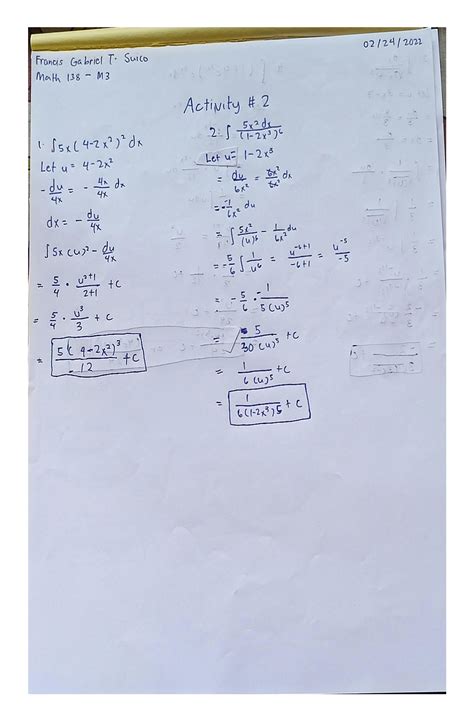 Francis Gabriel T. Suico
02/24/2022
Math 138 - M3
Activity # 2
1. ∫5x(4-2x²)² dx
Let u = 4-2x²
-du/4x = -4x/4x dx
dx = -du/4x
∫5x(u)² - du/4x
= 5/4 · u²⁺¹/2+1 + C
= 5/4 · u³/3 + C
= 5(4-2x²)³/12 + C
2. ∫ 5x² dx/(1-2x³)⁶
Let u = 1-2x³
= du/6x² = 6x²/6x² dx
= -1/6x² du
= ∫ 5x²/(u)⁶ - 1/6x² du
= -5/6 ∫ 1/u⁶ = u⁻⁶⁺¹/-6+1 = u⁻⁵/-5
= -5/6 · -1/5(u)⁵
= 5/30(u)⁵ + C
= 1/6(u)⁵ + C
= 1/6(1-2x³)5 + C